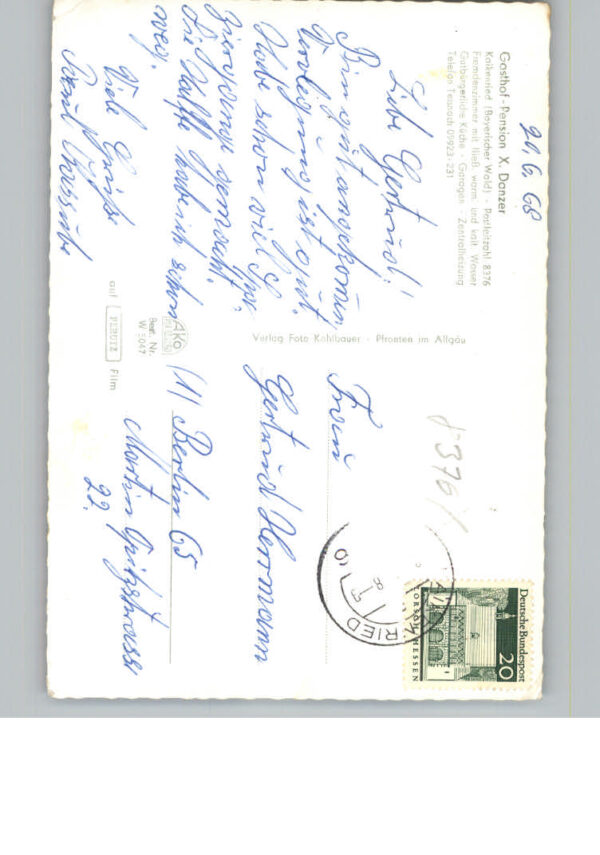 Gasthof - Pension X. Danzer
Kaikenried (Bayerischer Wald) - Postleitzahl 8376
Fremdenzimmer mit fließ. warm. und kalt. Wasser
Gutbürgerliche Küche - Garagen - Zentralheizung
Telefon Teisnach 09923-231
21.6.68
Liebe Gertrud!
Bin gut angekommen
Verlegung ist gut.
Habe schon viel Spa-
ziergänge gemacht.
Die Hälfte habe ich schon
weg.
Viel Grüße
Verlag Foto Kohlbauer - Pfronten im Allgäu
AKO
Best. Nr.
W 5047
auf PERUTZ Film
8376/
Frau
Gertrud Herrmann
(1) Berlin 65
Martin Opitzstrasse
22.
Deutsche Bundespost
20
TORSCH HESSEN
RIED